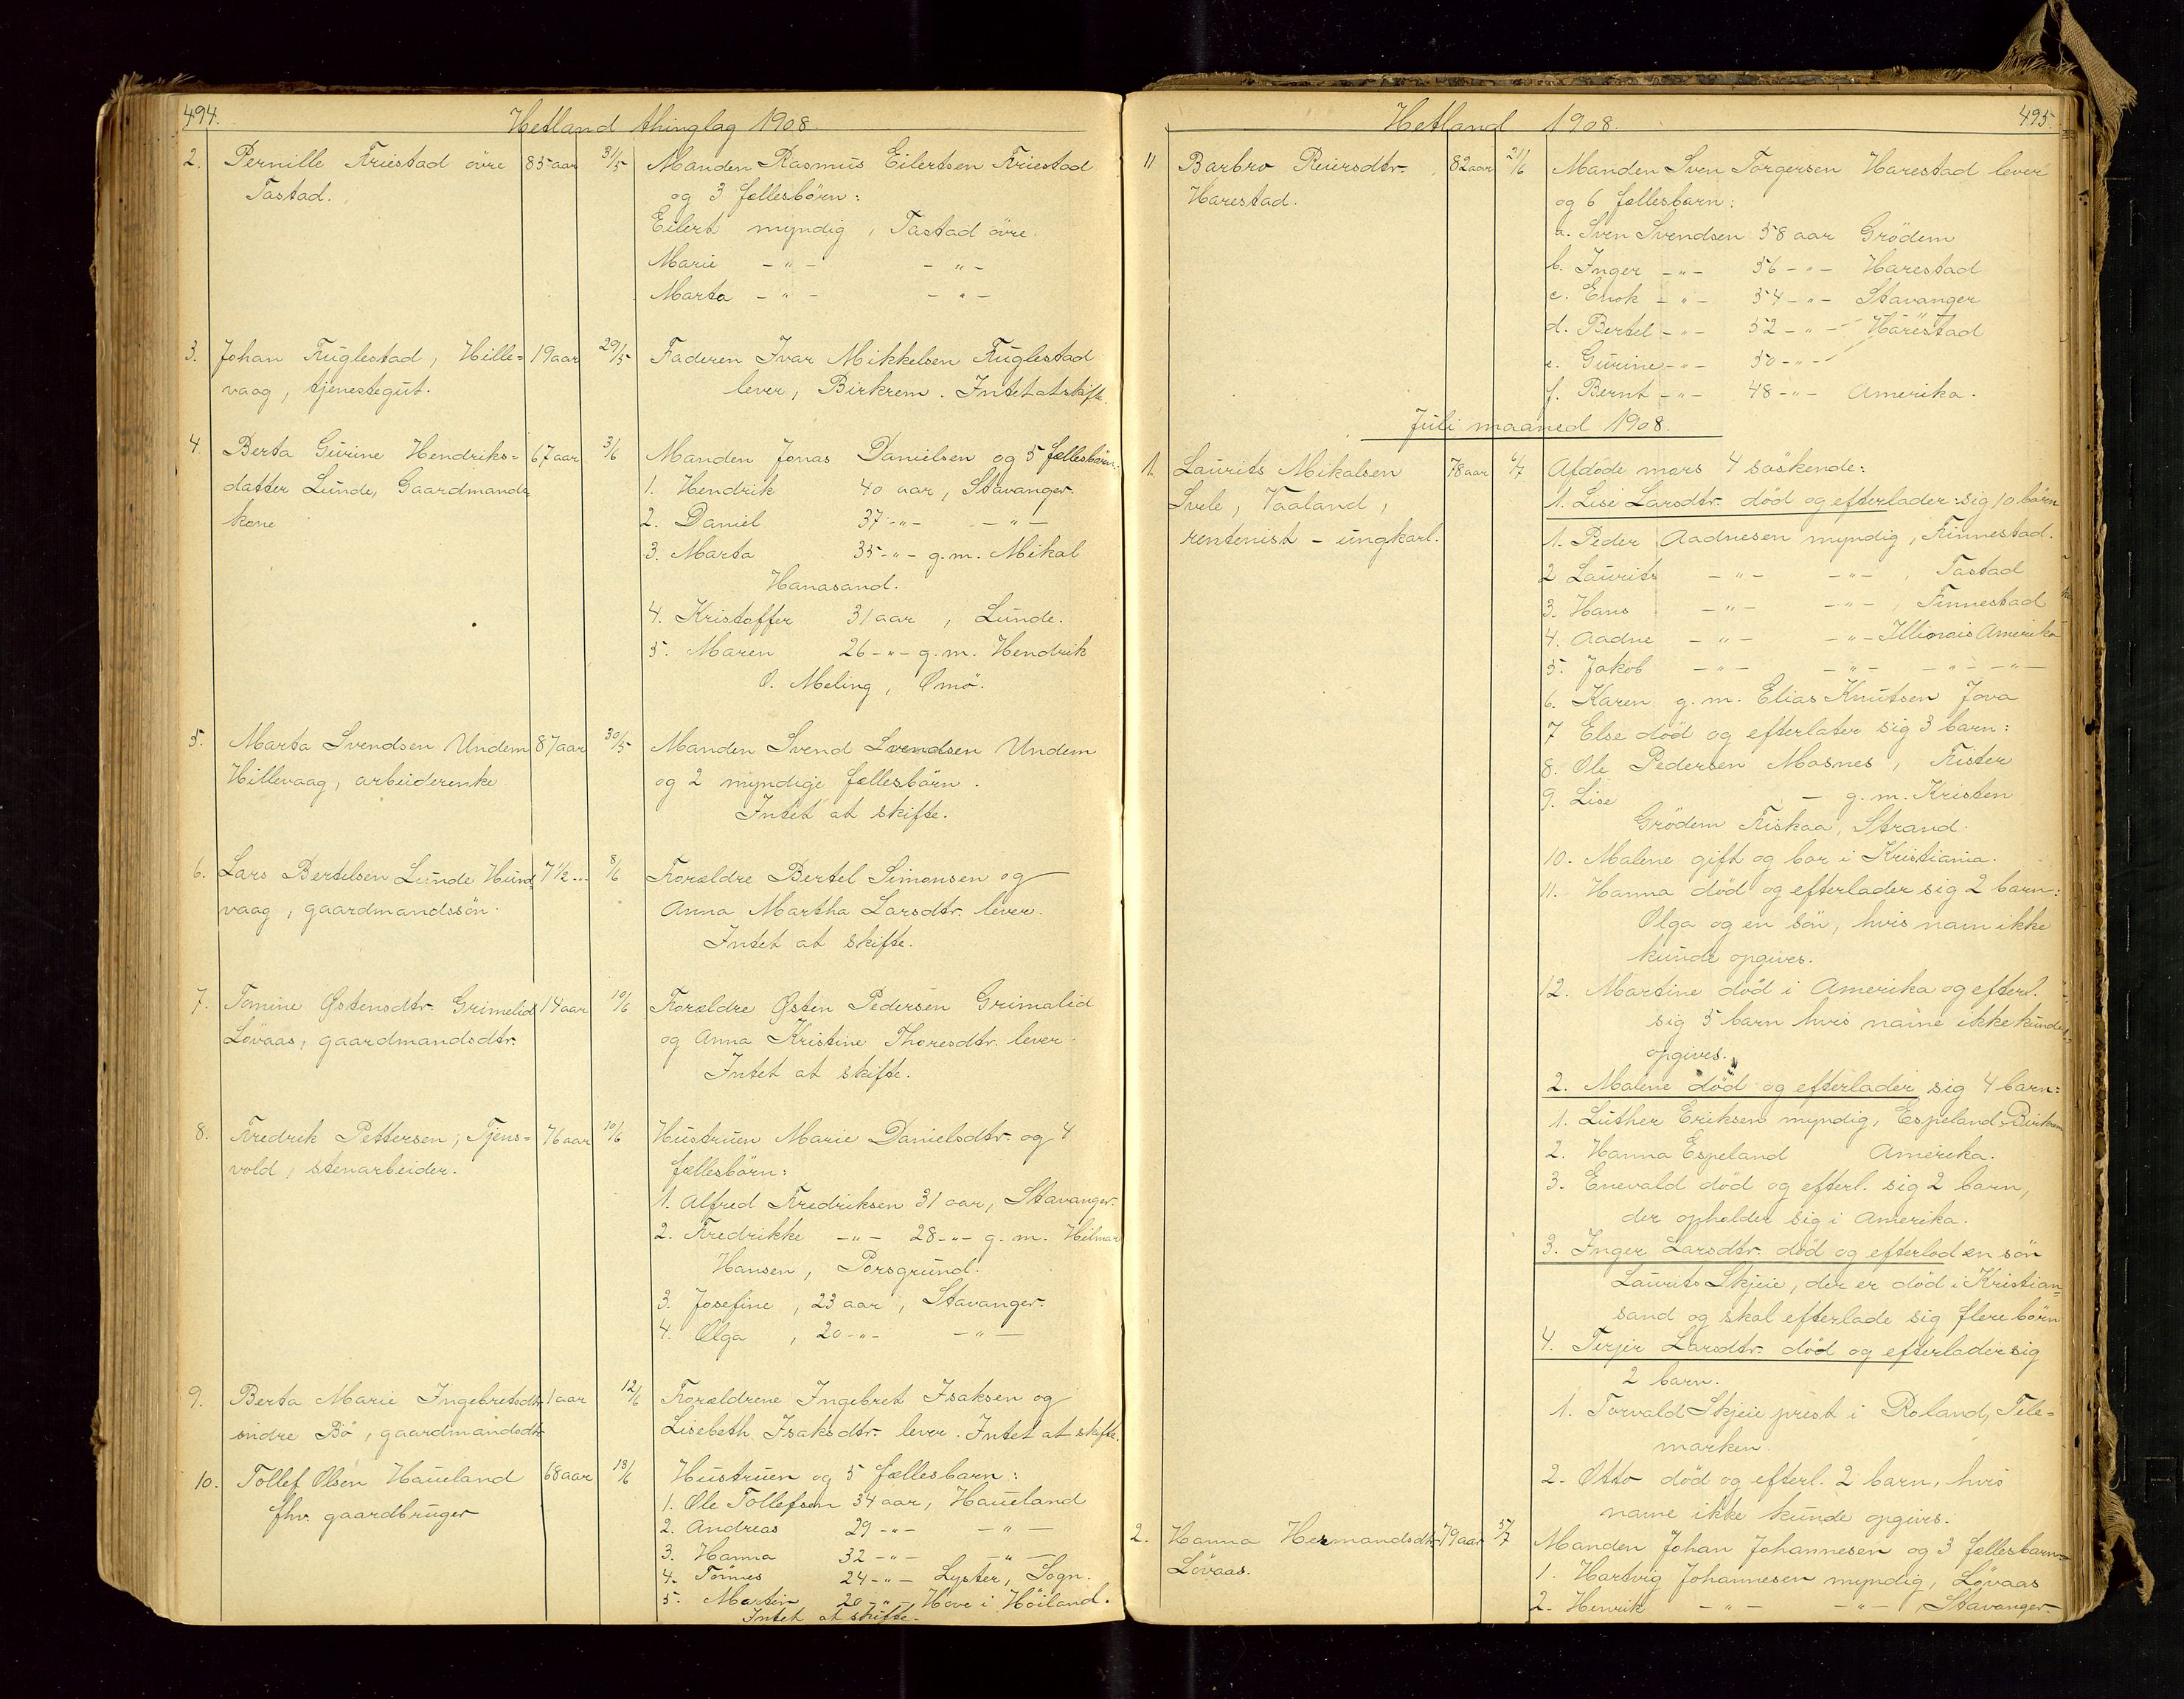 494.
Hetland thinglag 1908.
2. Pernille Friestad övre 85 aar 31/5 Manden Rasmus Eilertsen Friestad
Tastad. og 3 fællesbörn:
Eilert myndig, Tastad övre.
Marie -"- -"-
Marta -"- -"-
3. Johan Fuglestad, Hille= 19 aar 29/5 Faderen Ivar Mikkelsen Fuglestad
vaag, tjenestegut. lever, Birkrem. Intet at skifte.
4. Berta Gurine Hendriks= 67 aar 3/6 Manden Jonas Danielsen og 5 fællesbörn:
datter Lunde, Gaardmands 1. Hendrik 40 aar, Stavanger.
kone 2. Daniel 37 -"- -"-
3. Marta 35 -"- g.m. Mikal
Hanasand.
4. Kristoffer 31 aar, Lunde.
5. Maren 26 -"- g.m. Hendrik
O. Meling, Ømö.
5. Marta Svendsen Undem 87 aar 30/5 Manden Svend Svendsen Undem
Hillevaag, arbeiderenke og 2 myndige fællesbörn.
Intet at skifte.
6. Lars Bertelsen Lunde Hund= 7 1/2 -"- 8/6 Forældre Bertel Simonsen og
vaag, gaardmandssön. Anna Martha Larsdtr. lever.
Intet at skifte.
7. Tomine Østensdtr. Grimelid 14 aar 10/6 Forældre Østen Pedersen Grimalid
Lövaas, gaardmandsdtr. og Anna Kristine Thoresdtr. lever.
Intet at skifte.
8. Fredrik Pettersen, Tjens= 76 aar 10/6 Hustruen Marie Danielsdtr. og 4
vold, stenarbeider. fællesbörn:
1. Alfred Fredriksen 31 aar, Stavanger.
2. Fredrikke -"- 28 -"- g.m. Hilmar
Hansen, Porsgrund.
3. Josefine, 23 aar, Stavanger.
4. Olga, 20 -"- -"-
9. Berta Marie Ingebretsdtr. 1 aar 12/6 Forældrene Ingebret Isaksen og
indre Bö, gaardmandsdtr. Lisebeth Isaksdtr. lever. Intet at skifte.
10. Tollef Olsen Haueland 68 aar 18/6 Hustruen og 5 fællesbarn:
fhv. gaardbruger 1. Ole Tollefsen 34 aar, Haueland
2. Andreas 29 -"- -"-
3. Hanna 32 -"- -"-
4. Tönnes 24 -"- Lyster, Sogn.
5. Martin 20 -"- Hove i Höiland.
Intet at skifte.
Hetland 1908. 495.
11 Barbro Reiersdtr. 82 aar 21/6 Manden Sven Torgersen Harestad lever
Harestad. og 6 fællesbarn:
a. Sven Svendsen 58 aar Grödem
b. Inger -"- 56 -"- Harestad
c. Enok -"- 54 -"- Stavanger
d. Bertel -"- 52 -"- Harestad
e. Gurine -"- 50 -"-
f. Bernt -"- 48 -"- Amerika.
Juli maaned 1908.
1. Laurits Mikalsen 78 aar 6/7 Afdöde mors 4 söskende:
Svele, Vaaland, 1. Lise Larsdtr. död og efterlader sig 10 börn
rentenist - ungkarl. 1. Peder Aadnesen myndig, Finnestad.
2 Laurits -"- -"-, Tastad
3. Hans -"- -"-, Finnestad
4. Aadne -"- -"- Illionois Amerika
5. Jakob -"- -"- -"- -"-
6. Karen g.m. Elias Knutsen Jova
7 Else död og efterlater sig 3 barn:
8. Ole Pedersen Mosnes, Fister
9. Lise - g.m. Kristen
Grödem Fiskaa, Strand.
10. Malene gift og bor i Kristiania.
11. Hanna död og efterlader sig 2 barn:
Olga og en sön, hvis navn ikke
kunde opgives.
12. Martine död i Amerika og efterl.
sig 5 barn hvis navne ikke kunde
opgives.
2. Malene död og efterlader sig 4 barn:
1. Luther Eriksen myndig, Espeland Birkrem
2. Hanna Espeland Amerika.
3. Enevald död og efterl. sig 2 barn,
der opholder sig i Amerika.
3. Inger Larsdtr. död og efterlod en sön
Laurits Skjeie, der er död i Kristian=
sand og skal efterlade sig flere börn
4. Terjer Larsdtr. död og efterlader sig
2 barn.
1. Torvald Skjeie prest i Roland, Tele=
marken.
2. Otto död og efterl. 2 barn, hvis
navne ikke kunde opgives.
2. Hanna Hermandsdtr. 79 aar 5/7 Manden Johan Johannesen og 3 fællesbarn
Lövaas. 1. Hartvig Johannesen myndig, Lövaas
2. Henrik -"- -"-, Stavanger.